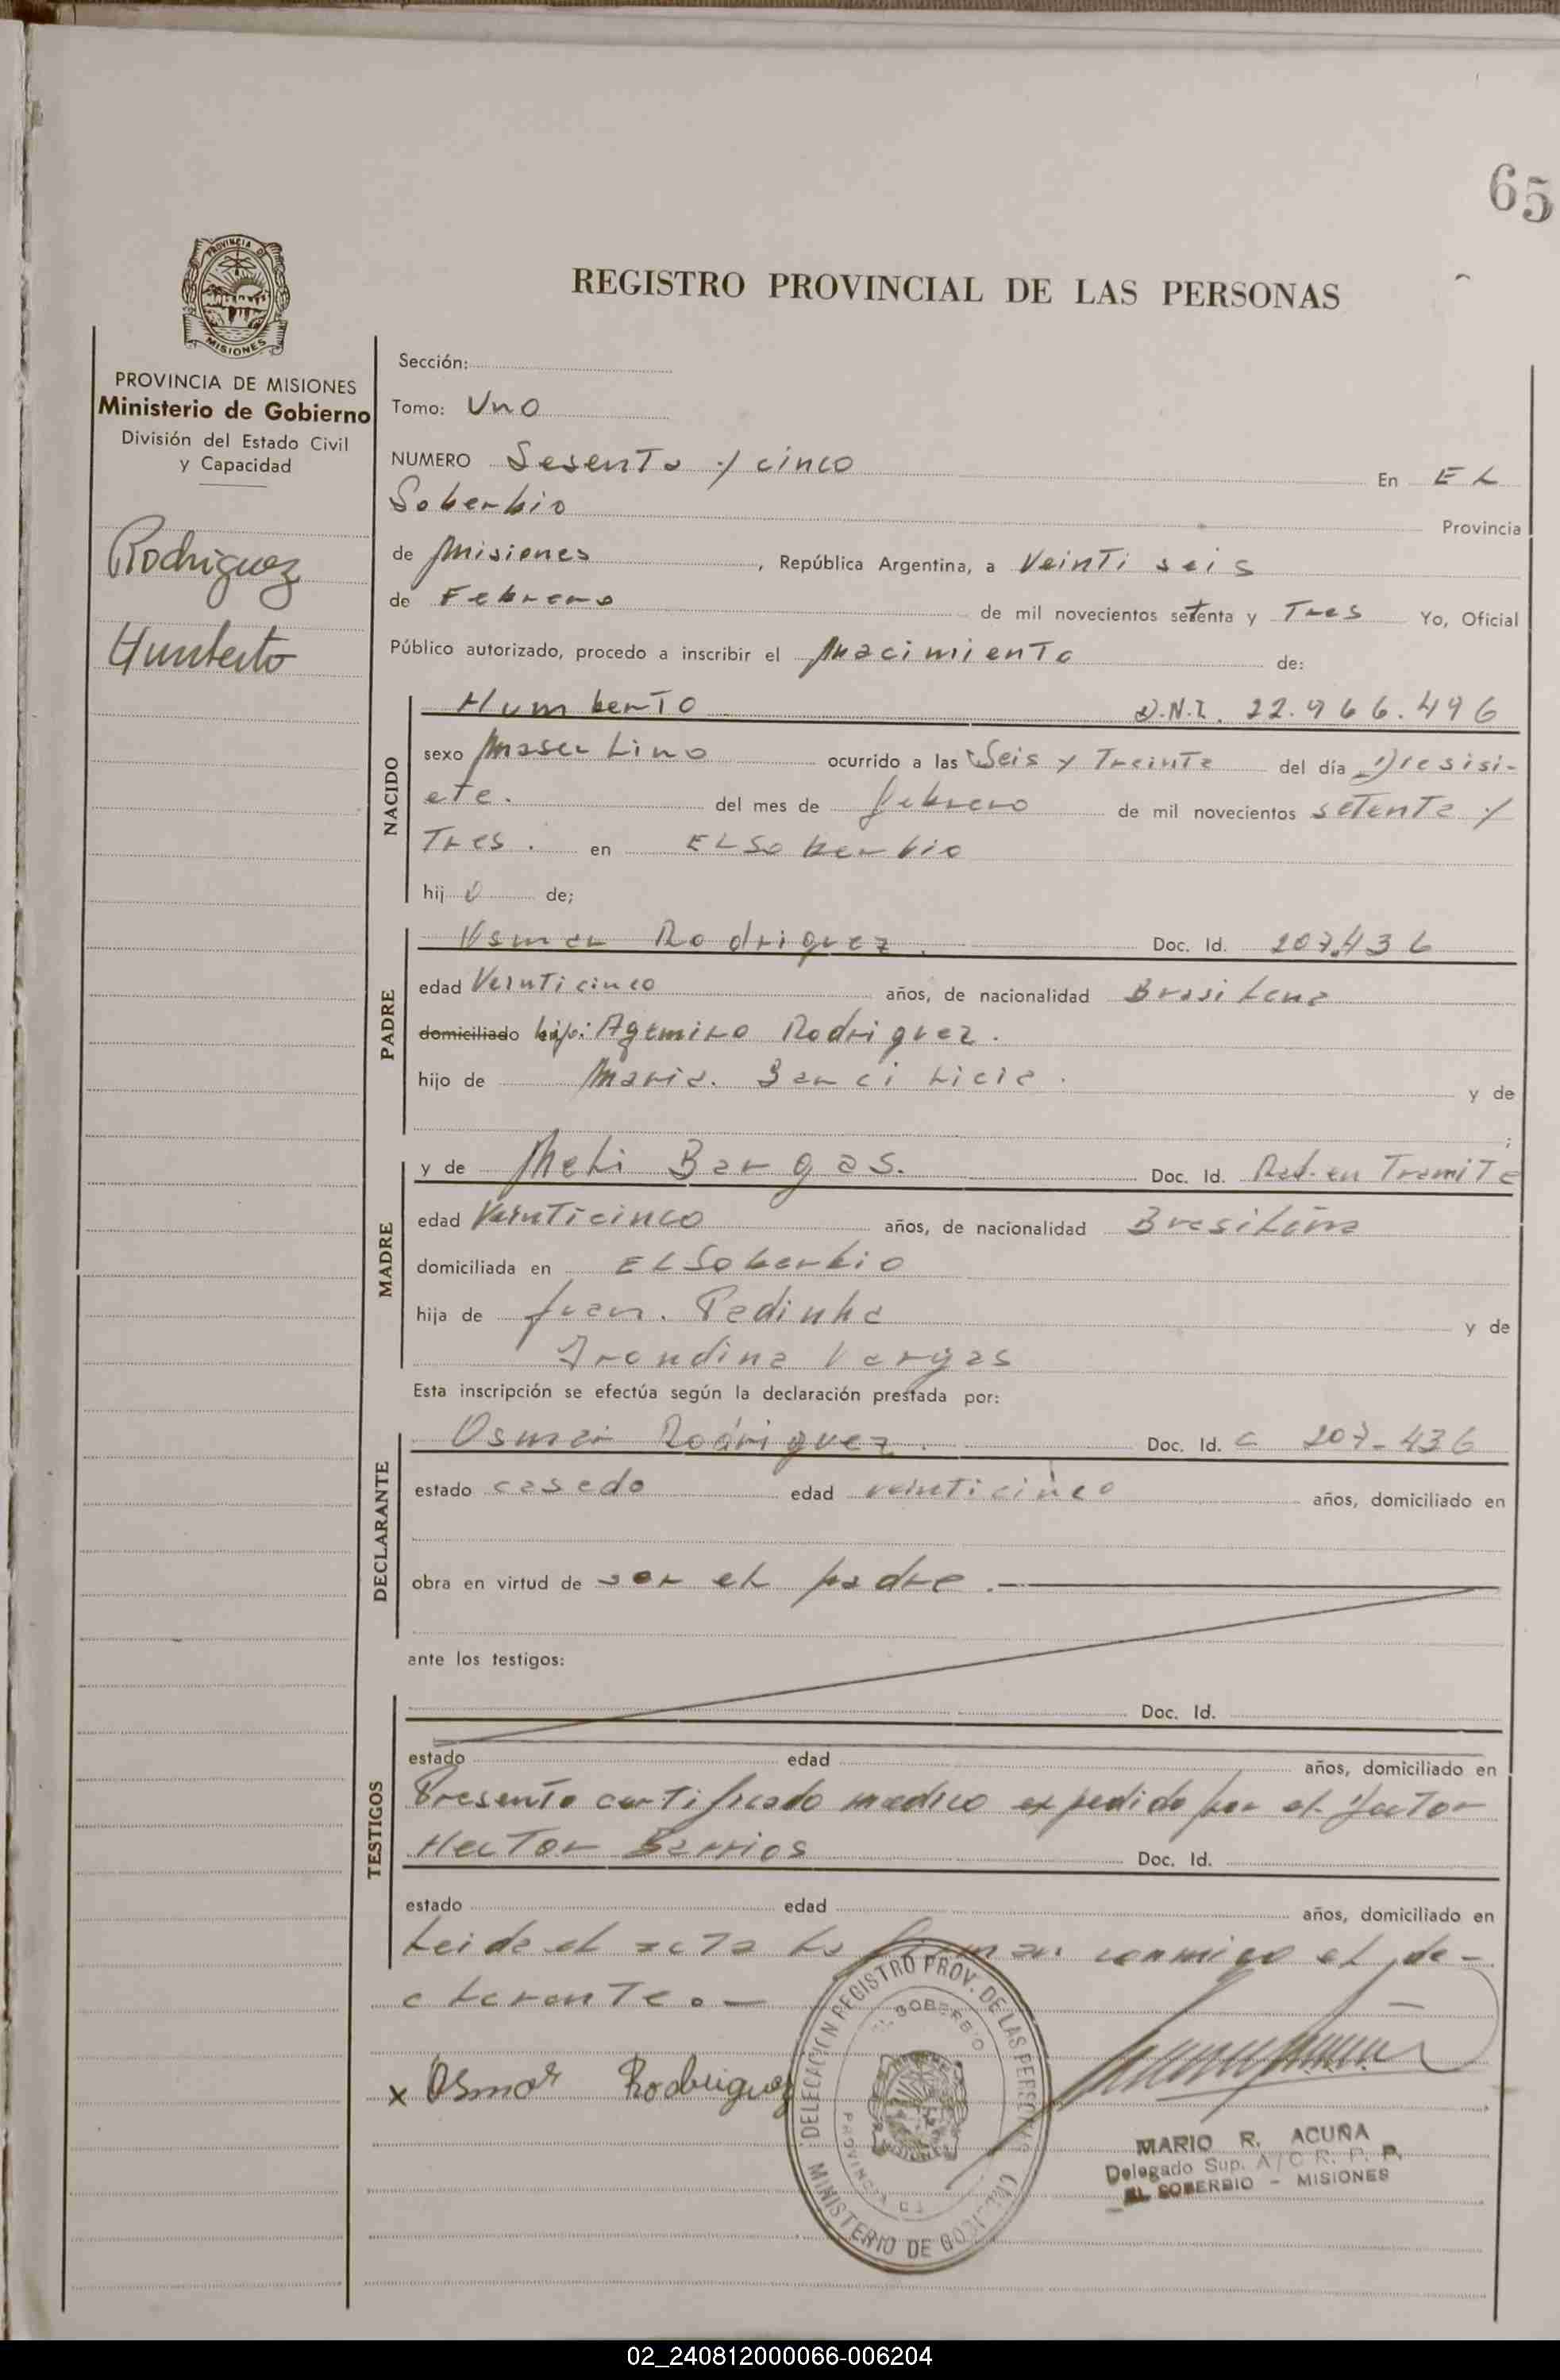 65
PROVINCIA DE MISIONES
REGISTRO PROVINCIAL DE LAS PERSONAS
PROVINCIA DE MISIONES
Ministerio de Gobierno
División del Estado Civil
y Capacidad
Rodriguez
Humberto
Sección:
Tomo: Uno
NUMERO Sesenta y cinco En EL
Soberbio Provincia
de Misiones, República Argentina, a Veinti seis
de Febrero de mil novecientos setenta y Tres Yo, Oficial
Público autorizado, procedo a inscribir el Nacimiento de:
NACIDO
Humberto D.N.I. 22.966.496
sexo Masculino ocurrido a las Seis y Treinta del día Diesisi-
ete. del mes de febrero de mil novecientos setenta y
Tres. en EL Soberbio
hijo de;
PADRE
Osmar Rodriguez. Doc. Id. 207.436
edad Veinticinco años, de nacionalidad Brasilena
domiciliado hijo: Agemiro Rodriguez.
hijo de Maria. y de
;
MADRE
y de Neli Bargas. Doc. Id. Rad. en Tramite
edad Veinticinco años, de nacionalidad Brasileña
domiciliada en EL Soberbio
hija de Juan. Padinha y de
Irondina Vargas
Esta inscripción se efectúa según la declaración prestada por:
DECLARANTE
Osmar Rodriguez. Doc. Id. C 207-436
estado casado edad veinticinco años, domiciliado en
obra en virtud de ser el padre.
ante los testigos:
TESTIGOS
Doc. Id.
estado edad años, domiciliado en
Presento certificado medico expedido por el doctor
Hector Barrios Doc. Id.
estado edad años, domiciliado en
Leida el acta la firman conmigo el de-
clarante.-
x Osmar Rodriguez
DELEGACION REGISTRO PROV. DE LAS PERSONAS
EL SOBERBIO
MINISTERIO DE GOBIERNO
MARIO R. ACUÑA
Delegado Sup. A/C R. P. P.
EL SOBERBIO - MISIONES
02_240812000066-006204